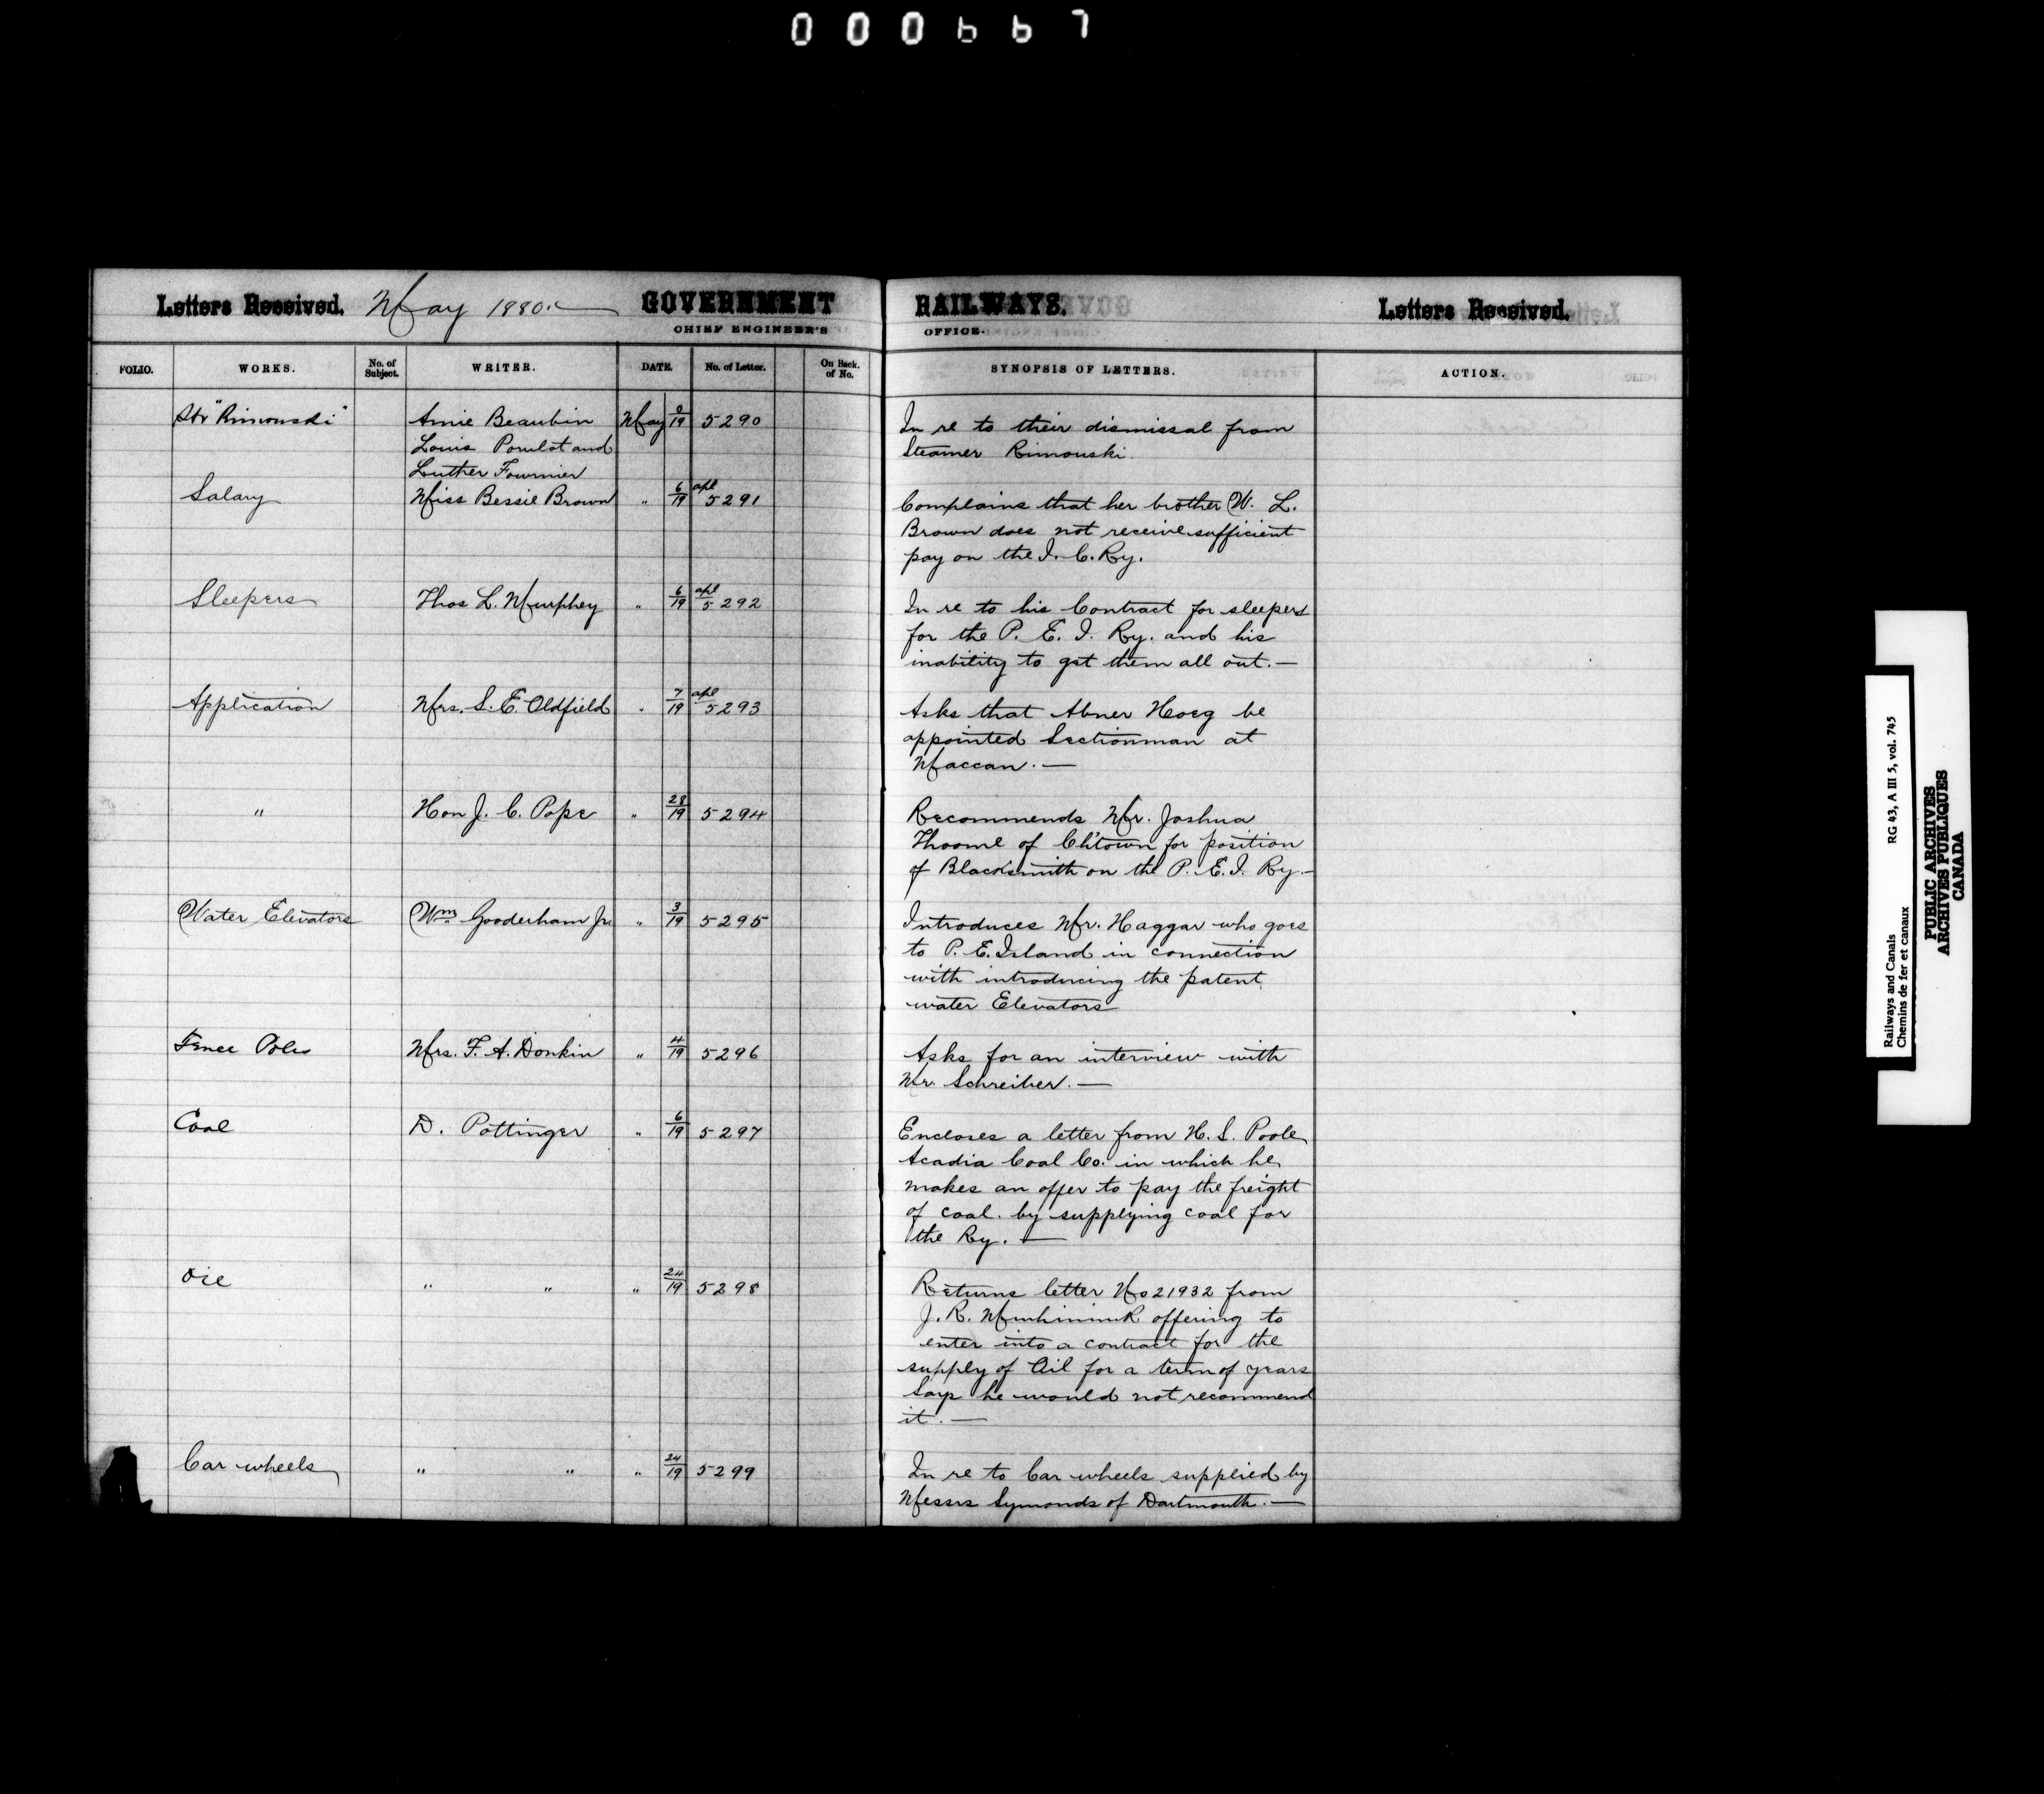 000667
Letters Received. May 1880. GOVERNMENT RAILWAYS. Letters Received.
CHIEF ENGINEER'S OFFICE.
FOLIO. WORKS. No. of Subject. WRITER. DATE. No. of Letter. On Back. of No. SYNOPSIS OF LETTERS. ACTION.
Str "Rimouski" Amie Beaubin May 19 5290 In re to their dismissal from
Louis Poulot and Steamer Rimouski.
Luther Fournier
Salary Miss Bessie Brown " 6/19 apl 5291 Complains that her brother W. L.
Brown does not receive sufficient
pay on the I. C. Ry.
Sleepers Thos L. Murphey " 6/19 apl 5292 In re to his Contract for sleepers
for the P. E. I. Ry. and his
inability to get them all out. —
Application Mrs. S. E. Oldfield " 7/19 apl 5293 Asks that Abner Hoeg be
appointed Sectionman at
Maccan. —
" Hon J. C. Pope " 28/19 5294 Recommends Mr. Joshua
Thoome of Ch'town for position
of Blacksmith on the P. E. I. Ry. —
Water Elevators Wm Gooderham Jr. " 3/19 5295 Introduces Mr. Haggar who goes
to P. E. Island in connection
with introducing the patent
water Elevators
Fence Poles Mrs. F. A. Donkin " 4/19 5296 Asks for an interview with
Mr. Schreiber. —
Coal D. Pottinger " 6/19 5297 Encloses a letter from H. S. Poole
Acadia Coal Co. in which he
makes an offer to pay the freight
of coal. by supplying coal for
the Ry. —
Oil " " " 24/19 5298 Returns letter No 21932 from
J. R. offering to
enter into a contract for the
supply of Oil for a term of years
Says he would not recommend
it. —
Car wheels " " " 24/19 5299 In re to Car wheels supplied by
Messrs Symonds of Dartmouth. —
Railways and Canals RG 43, A III 5, vol. 745
Chemins de fer et canaux
PUBLIC ARCHIVES
ARCHIVES PUBLIQUES
CANADA